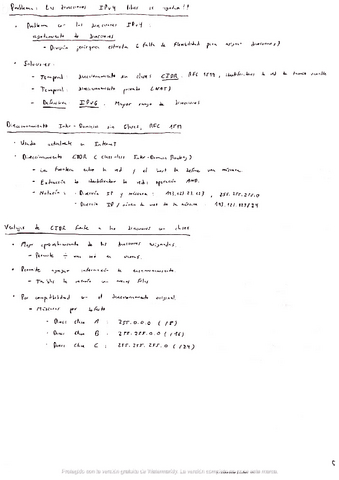 Problema: Las direcciones IPv4 libres se agotan!!
• Problema con las direcciones IPv4:
agotamiento de direcciones
- División jerárquica estricta (falta de flexibilidad para asignar direcciones)
• Soluciones:
- Temporal: direccionamiento sin clases CIDR. RFC 1519,
- Temporal: Direccionamiento privado (NAT)
- Definitiva: IPv6. Mayor rango de direcciones
Direccionamiento Inter-Dominio sin Clases, RFC 1519
• Usado actualmente en Internet
• Direccionamiento CIDR (Classless Inter-Domain Routing)
- La frontera entre la red y el host la define una máscara
- Extracción de identificador de red: operación AND.
- Notación: - Dirección IP y máscara: 255.255.255.0
- Dirección IP / nº bits de
Ventajas de CIDR frente a las direcciones con clases
• Mejor aprovechamiento de las direcciones asignadas.
- Permite una red en
• Permite agrupar información de encaminamiento
- Tablas de con menos filas
• Por compatibilidad con el direccionamiento original.
- Máscaras por defecto
• Direcc clase A: 255.0.0.0 (/8)
• Direcc clase B: 255.255.0.0 (/16)
• Direcc clase C: 255.255.255.0 (/24)